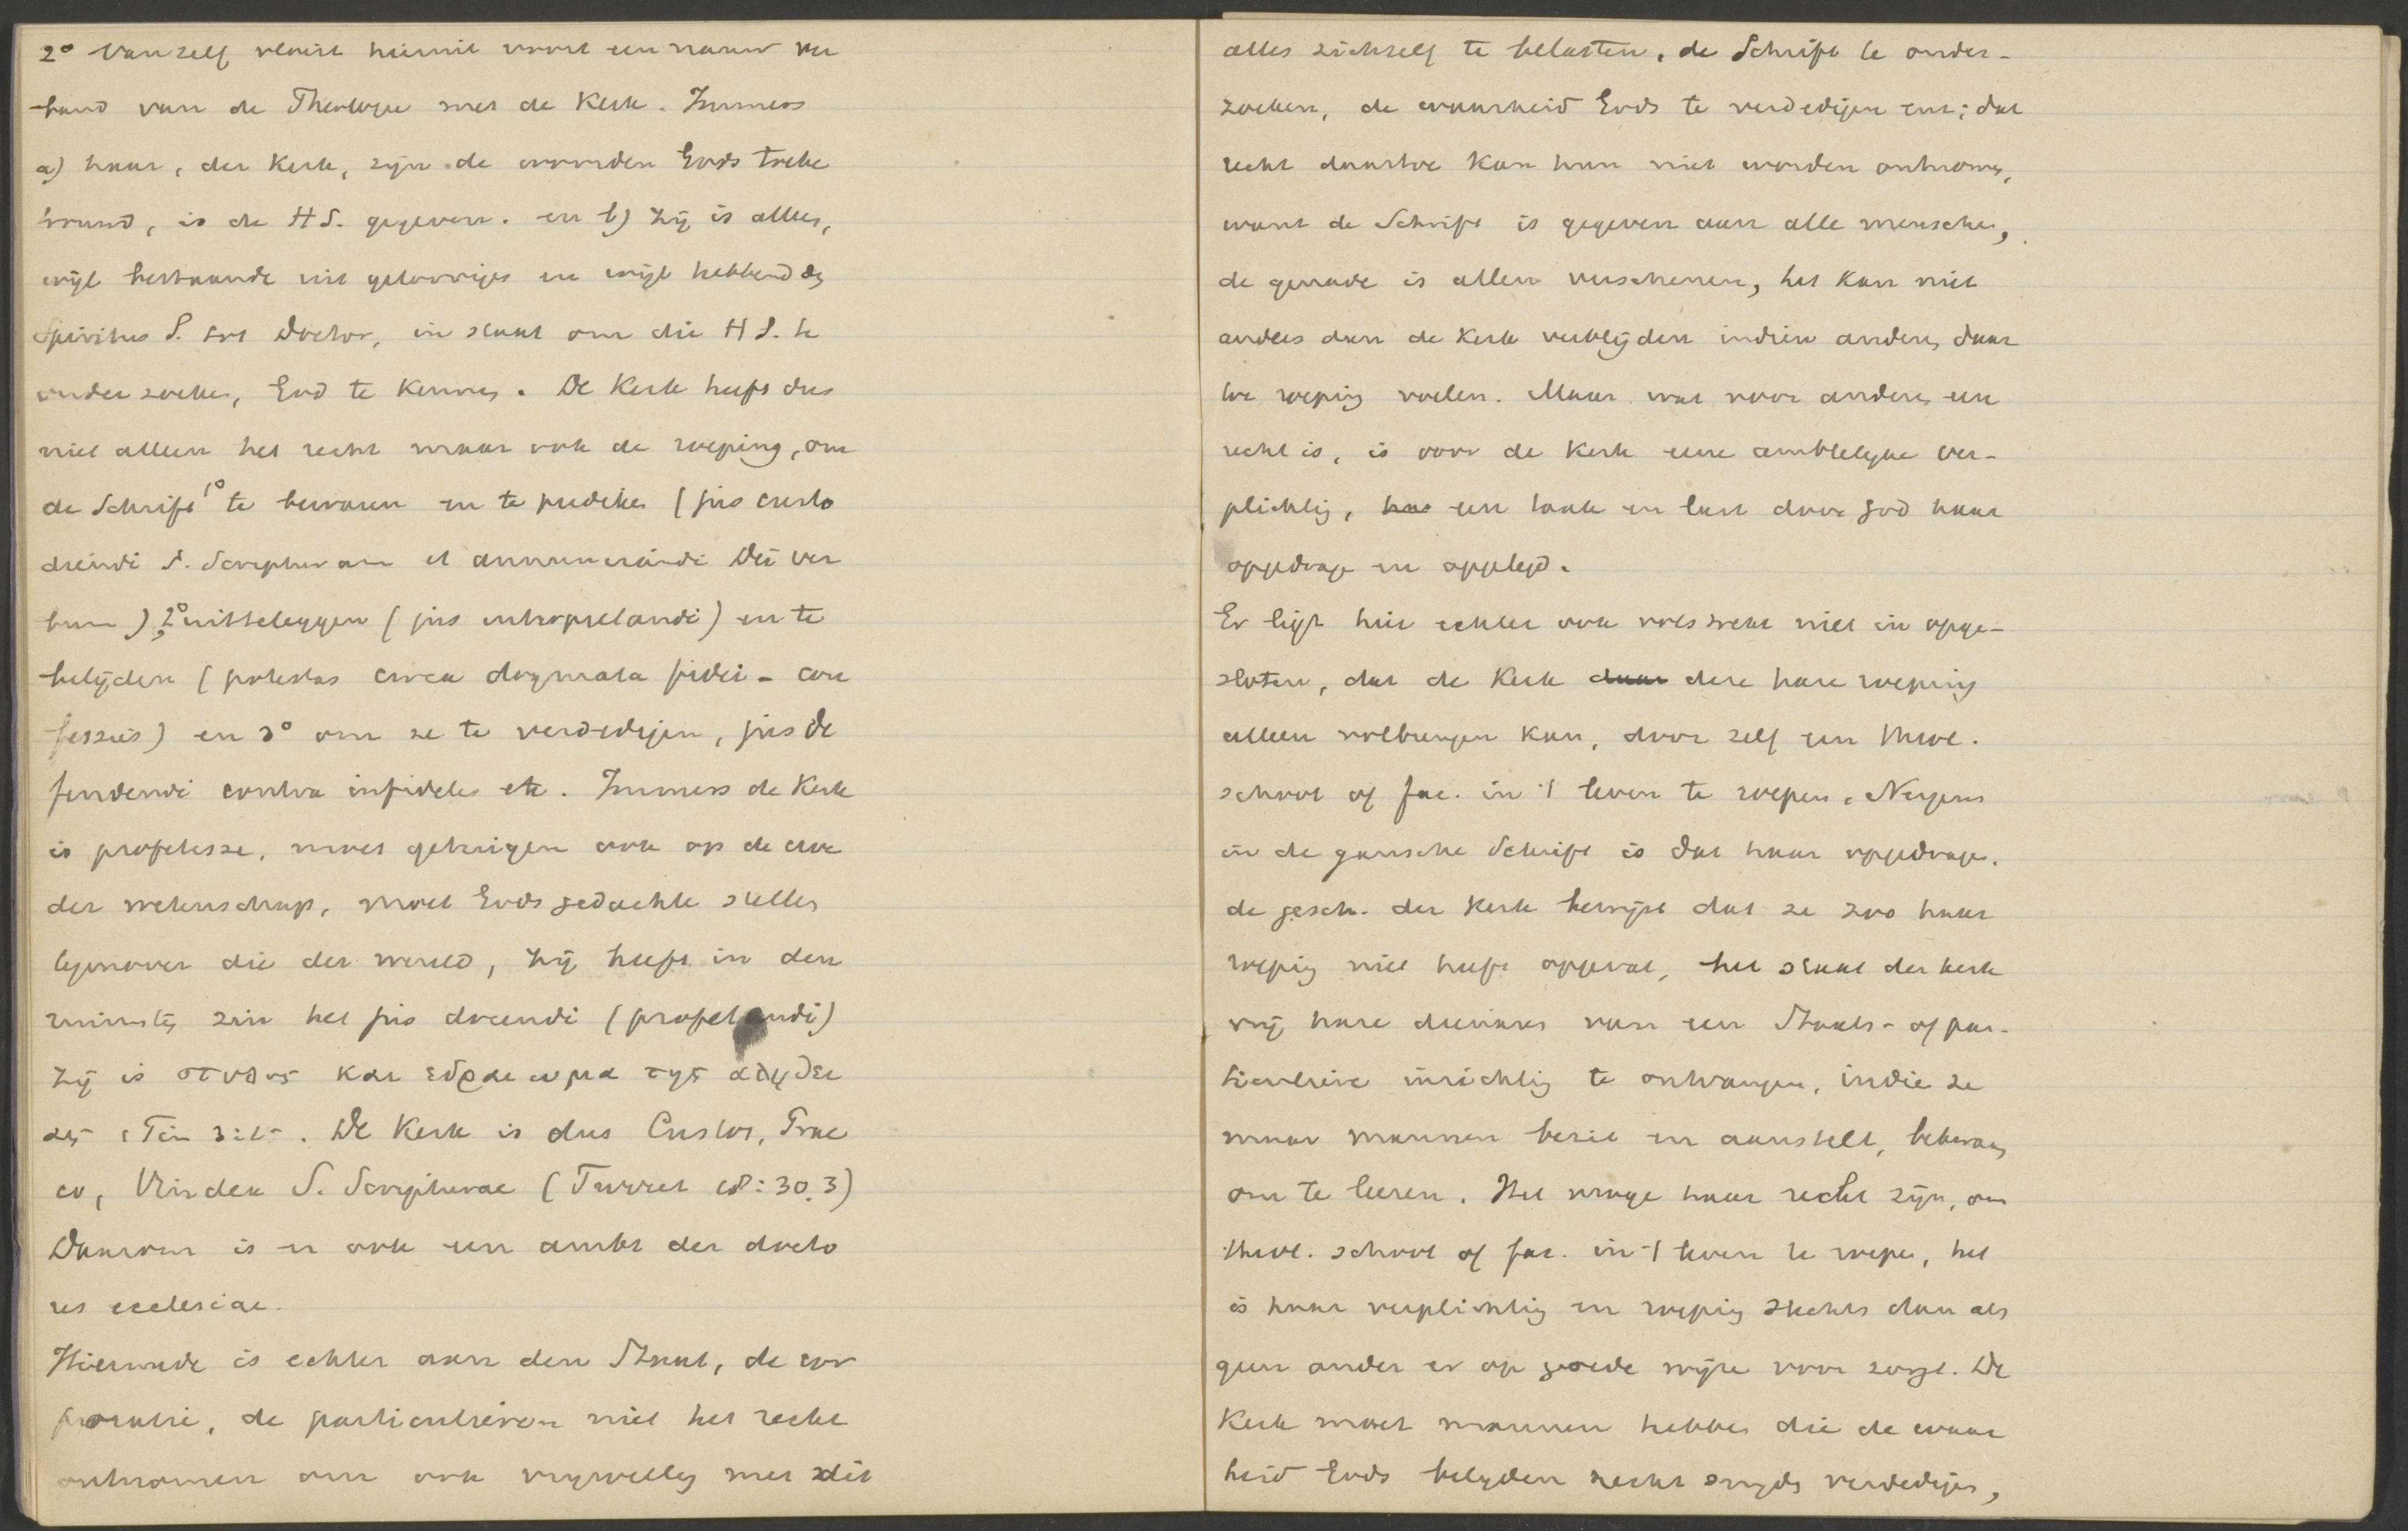 2° Vanzelf vloeit hieruit voort een nauw ver
band van de Theologie met de Kerk. Immers
a) haar, der Kerk, zijn de woorden Gods toebe
trouwd, is de HS. gegeven. en b) zij is alleen,
wijl bestaande uit geloovigen en wijl hebbend den
Spiritus S. tot Doctor, in staat om die H S. te
onderzoeken, God te kennen. De Kerk heeft dus
niet alleen het recht maar ook de roeping, om
de Schrift 1° te bewaren en te prediken (jus custo
diendi S. Scripturam et annunciandi Dei ver
bum), 2° uitteleggen (jus interpretandi) en te
belijden (potestas circa dogmata fidei - con
fessies) en 3° om ze te verdedigen, jus de
fendendi contra infideles etc. Immers de Kerk
is profetesse, moet getuigen ook op de erve
der wetenschap, moet Gods gedachte stellen
tegenover die der wereld, zij heeft in den
ruimsten zin het jus docendi (profetandi)
Zij is στυλος και εδραιωμα της αληθει
ας 1 Tim 3:15. De Kerk is dus Custos, Prae
co, Vindex S. Scripturae (Turret 18:30.3)
Daarom is er ook een ambt der docto
res ecclesiae.
Hiermede is echter aan den Staat, de cor
poratie, de particulieren niet het recht
ontnomen om ook vrijwillig met dit
alles zichzelf te belasten, de Schrift te onder-
zoeken, de waarheid Gods te verdedigen enz; dat
recht daartoe kan hun niet worden ontnomen,
want de Schrift is gegeven aan alle menschen,
de genade is allen verschenen, het kan niet
anders dan de Kerk verblijden indien anderen daar
toe roeping voelen. Maar wat voor anderen een
recht is, is voor de Kerk eene ambtelijke ver-
plichting, haar een taak en last door God haar
opgedragen en opgelegd.
Er ligt hier echter ook volstrekt niet in opge-
sloten, dat de Kerk daar deze hare roeping
alleen volbrengen kan, door zelf een theol.
school of fac. in 't leven te roepen. Nergens
in de gansche Schrift is dat haar opgedragen.
de gesch. der Kerk bewijst dat ze zoo haar
roeping niet heeft opgevat, het staat der kerk
vrij hare dienaars van een Staats- of par-
ticuliere inrichting te ontvangen, indien ze
maar mannen bezit en aanstelt, bekwaam
om te leeren. Het moge haar recht zijn, om
theol. school of fac. in 't leven te roepen, het
is haar verplichting en roeping slechts dan als
geen ander er op goede wijze voor zorgt. De
Kerk moet mannen hebben die de waar
heid Gods belijden recht snijden verdedigen,